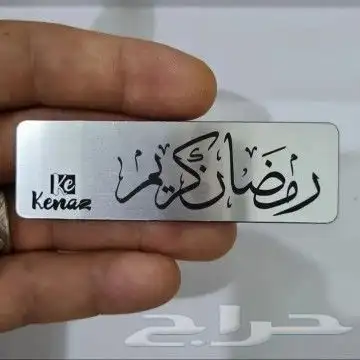 رمضان كريم
Ke
Kenaz
حراج